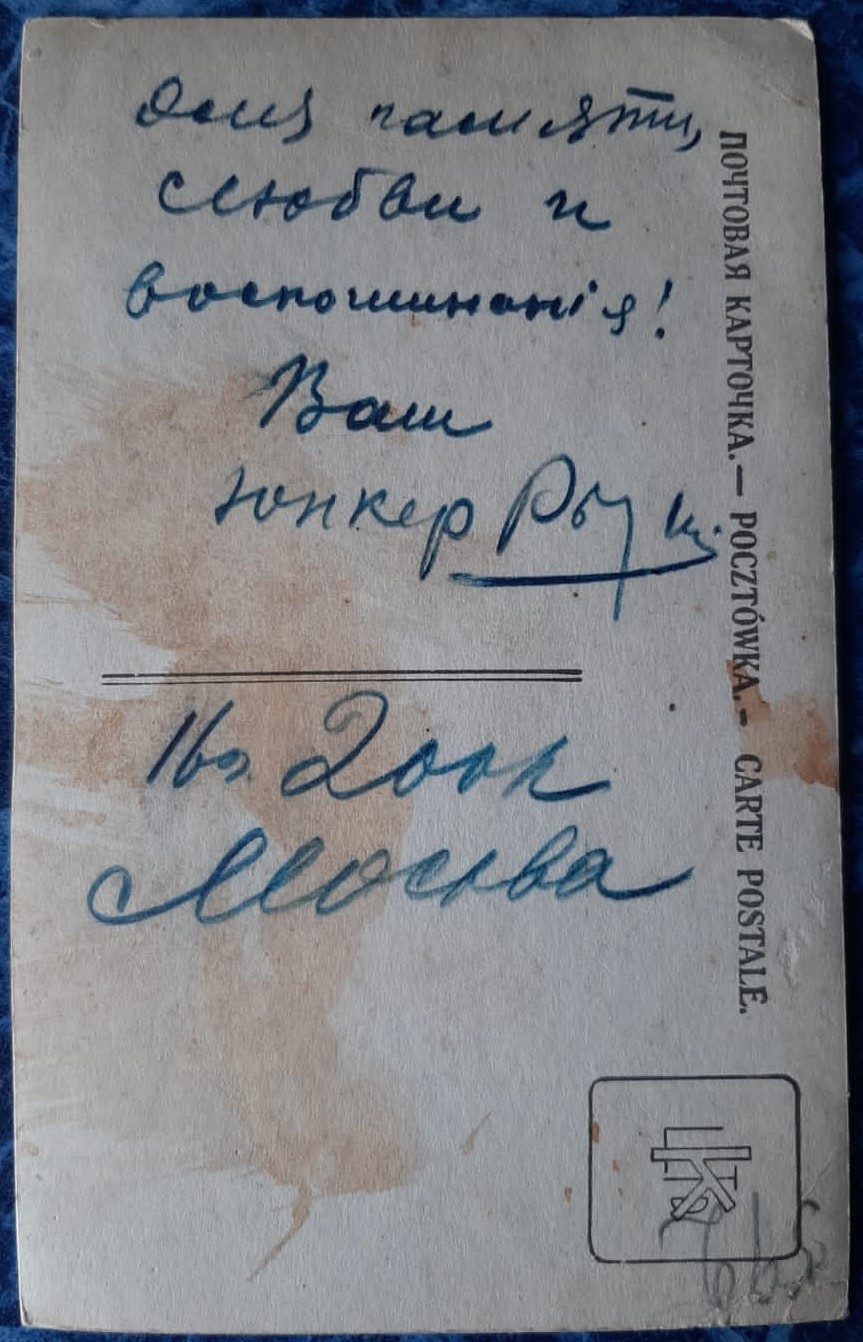 Для памяти,
любви и
воспоминанія!
Ваш
юнкер
Москва
ПОЧТОВАЯ КАРТОЧКА.— POCZTÓWKA.- CARTE POSTALE.